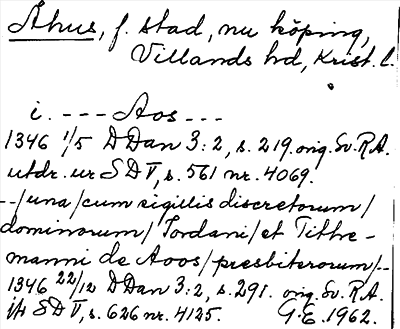 Åhus, f. stad, nu köping,
Villands hd, Krist. l.
i. --- Aos ---
1346 1/5 DDan 3:2, s. 219. orig. Sv. R.A.
utdr. ur SD V, s. 561 nr. 4069.
--/una/cum sigillis discretorum/
dominorum/Iordani/et Tithe-
manni de Aoos/presbiterorum/--
1346 22/12 DDan 3:2, s. 291. orig. Sv. R.A.
jfr SD V, s. 626 nr. 4125. G.E. 1962.